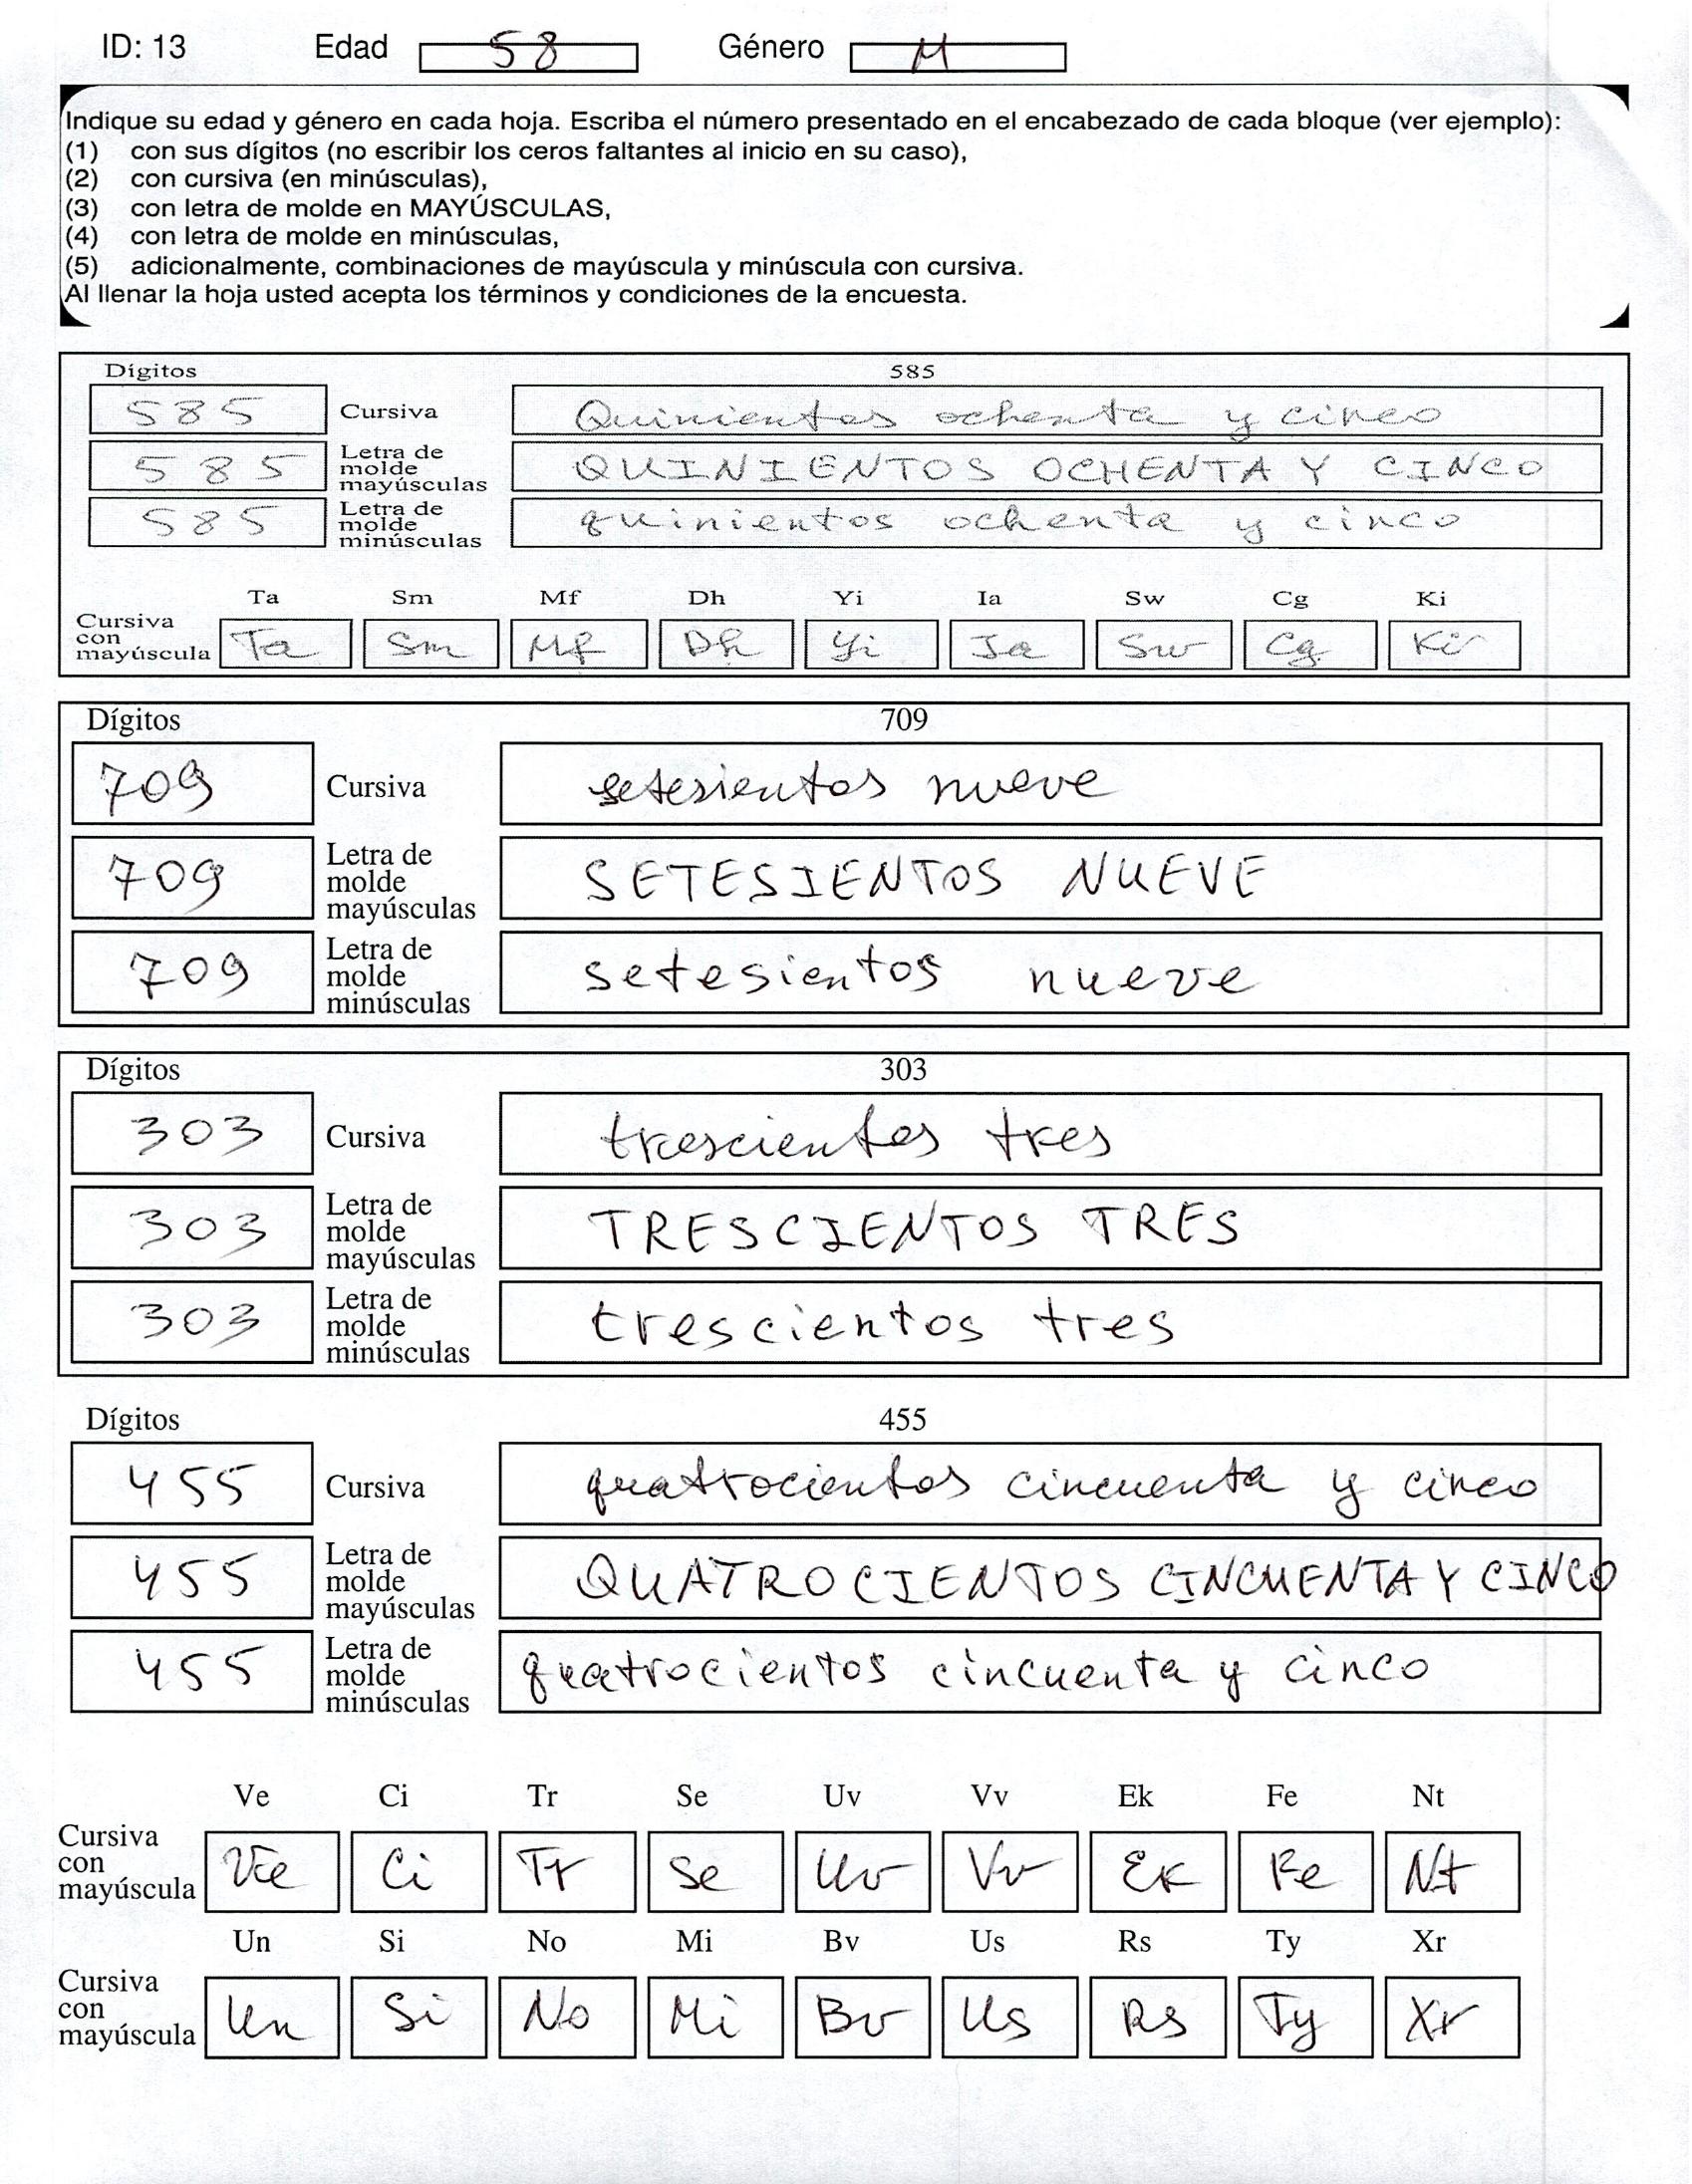 ID: 13 Edad 58 Género M
Indique su edad y género en cada hoja. Escriba el número presentado en el encabezado de cada bloque (ver ejemplo):
(1) con sus dígitos (no escribir los ceros faltantes al inicio en su caso),
(2) con cursiva (en minúsculas),
(3) con letra de molde en MAYÚSCULAS,
(4) con letra de molde en minúsculas,
(5) adicionalmente, combinaciones de mayúscula y minúscula con cursiva.
Al llenar la hoja usted acepta los términos y condiciones de la encuesta.
Dígitos 585
585 Cursiva Quinientos ochenta y cinco
585 Letra de molde mayúsculas QUINIENTOS OCHENTA Y CINCO
585 Letra de molde minúsculas quinientos ochenta y cinco
Ta Sm Mf Dh Yi Ia Sw Cg Ki
Cursiva con mayúscula Ta Sm Mf Dh Yi Ia Sw Cg Ki
Dígitos 709
709 Cursiva setesientos nueve
709 Letra de molde mayúsculas SETESIENTOS NUEVE
709 Letra de molde minúsculas setesientos nueve
Dígitos 303
303 Cursiva trescientos tres
303 Letra de molde mayúsculas TRESCIENTOS TRES
303 Letra de molde minúsculas trescientos tres
Dígitos 455
455 Cursiva quatrocientos cincuenta y cinco
455 Letra de molde mayúsculas QUATROCIENTOS CINCUENTA Y CINCO
455 Letra de molde minúsculas quatrocientos cincuenta y cinco
Ve Ci Tr Se Uv Vv Ek Fe Nt
Cursiva con mayúscula Ve Ci Tr Se Uv Vv Ek Fe Nt
Un Si No Mi Bv Us Rs Ty Xr
Cursiva con mayúscula Un Si No Mi Bv Us Rs Ty Xr